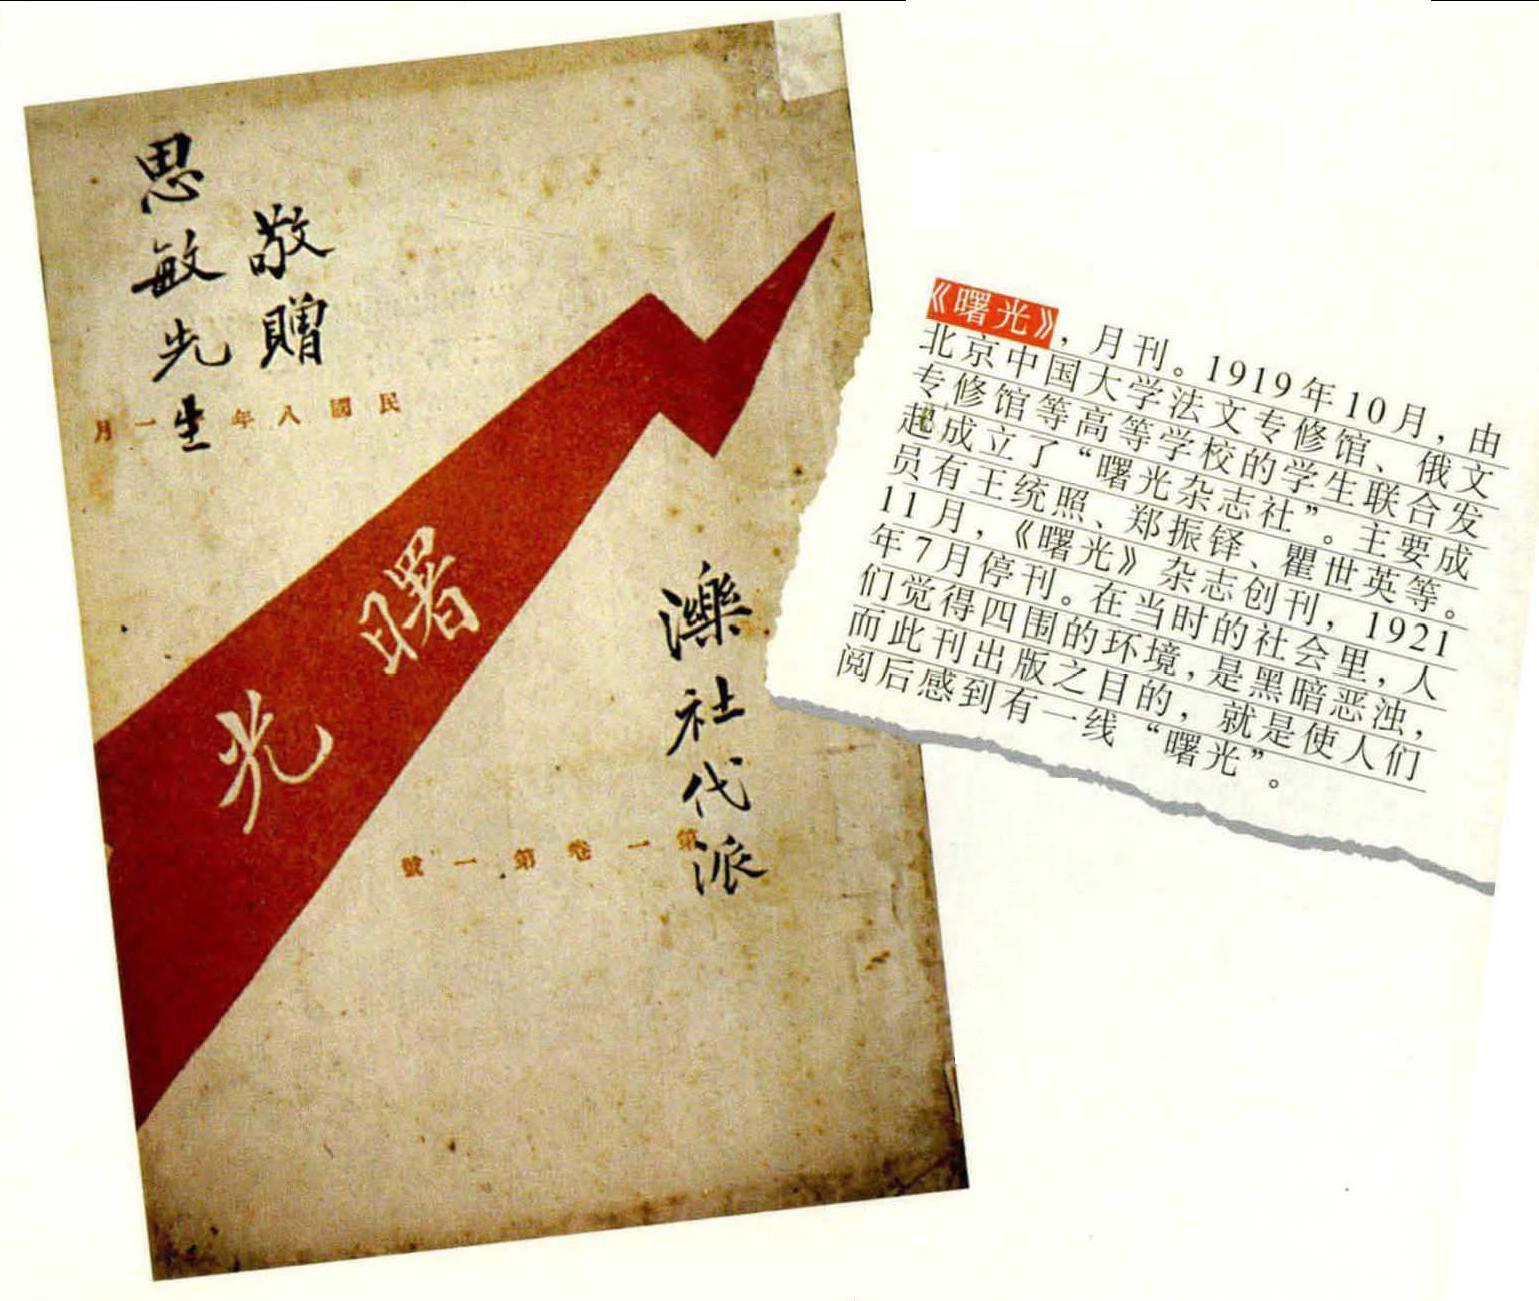 思敏先生
敬贈
民國八年一月
曙光
濼社代派
第一卷第一號
《曙光》，月刊。1919年10月，由
北京中国大学法文专修馆、俄文
专修馆等高等学校的学生联合发
起成立了“曙光杂志社”。主要成
员有王统照、郑振铎、瞿世英等。
11月，《曙光》杂志创刊，1921
年7月停刊。在当时的社会里，人
们觉得四围的环境，是黑暗恶浊，
而此刊出版之目的，就是使人们
阅后感到有一线“曙光”。